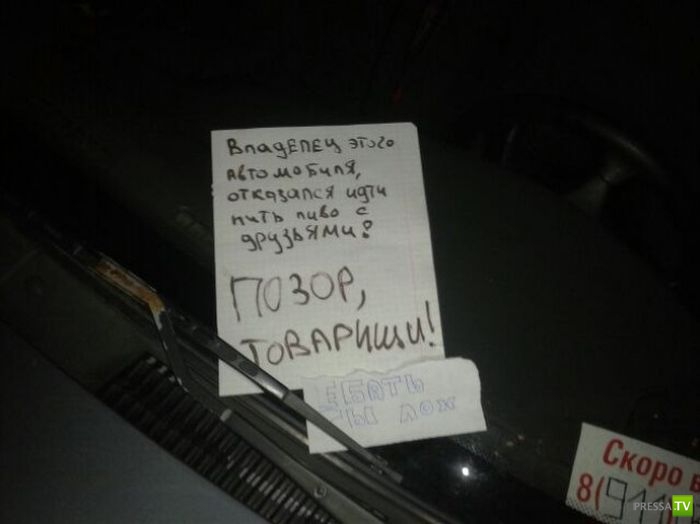 ВлаДЕЛЕЦ этого
автомобиля,
отказался идти
пить пиво с
друзьями?
ПОЗОР,
ТОВАРИЩИ!
ЕБАТЬ
ТЫ ЛОХ
Скоро в
8(911
PRESSA.TV